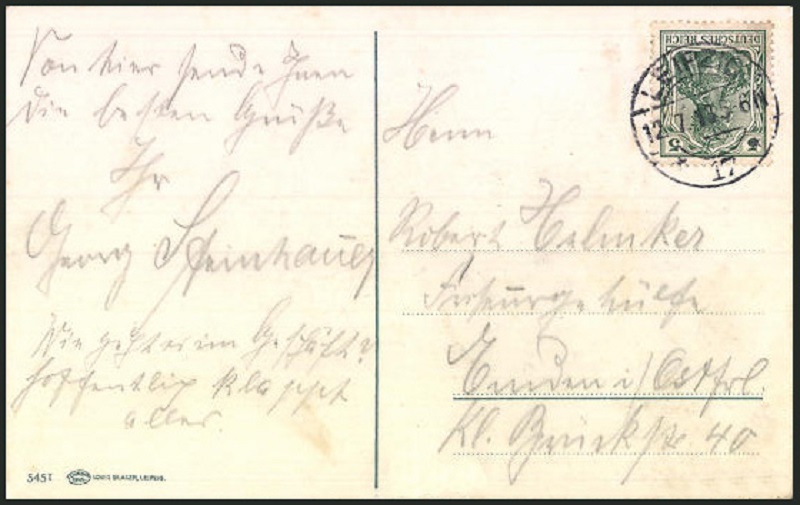 Von hier sende Ihnen
die besten Grüße
Ihr
Georg Steinhauer
Wie geht es im Geschäft?
hoffentlich klappt
alles.
5451
LOUIS GLASER, LEIPZIG.
DEUTSCHES REICH
5
LEIPZIG
12.7.
17
Herrn
Robert Helmker
Friseurgehülfe
Emden i/Ostfrl
Kl. Brückstr 40